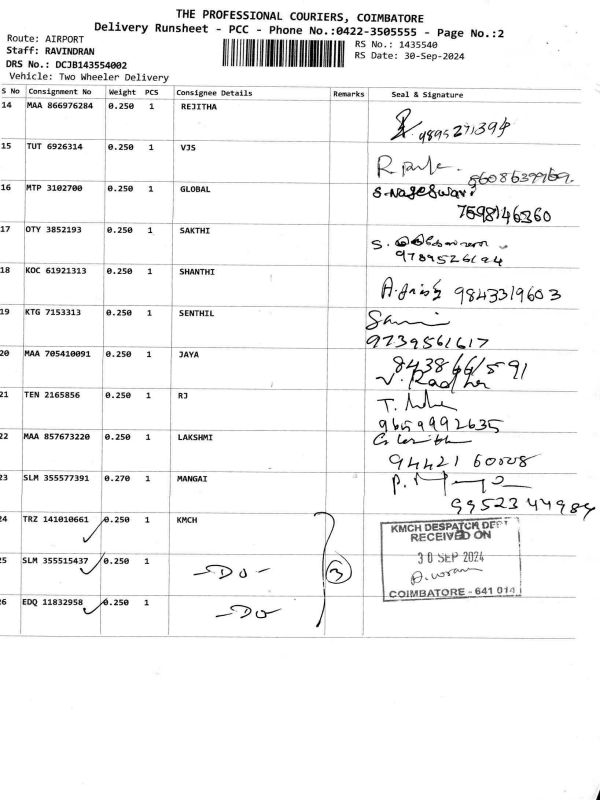 THE PROFESSIONAL COURIERS, COIMBATORE
Delivery Runsheet - PCC - Phone No.:0422-3505555 - Page No.:2
Route: AIRPORT
RS No.: 1435540
Staff: RAVINDRAN
RS Date: 30-Sep-2024
DRS No.: DCJB143554002
Vehicle: Two Wheeler Delivery
S No Consignment No Weight PCS Consignee Details Remarks Seal & Signature
14 MAA 866976284 0.250 1 REJITHA
15 TUT 6926314 0.250 1 VJS
8608639969.
16 MTP 3102700 0.250 1 GLOBAL S.Nageswari
7598146360
17 OTY 3852193 0.250 1 SAKTHI
18 KOC 61921313 0.250 1 SHANTHI 9843319603
19 KTG 7153313 0.250 1 SENTHIL
9739561617
20 MAA 705410091 0.250 1 JAYA
V. Radha
21 TEN 2165856 0.250 1 RJ
9659992635
22 MAA 857673220 0.250 1 LAKSHMI
94421 60008
23 SLM 355577391 0.270 1 MANGAI
99523 44984
24 TRZ 141010661 0.250 1 KMCH
25 SLM 355515437 0.250 1 -DO-
26 EDQ 11832958 0.250 1 -DO-
3
KMCH DESPATCH DEPT
RECEIVED ON
30 SEP 2024
COIMBATORE - 641 014